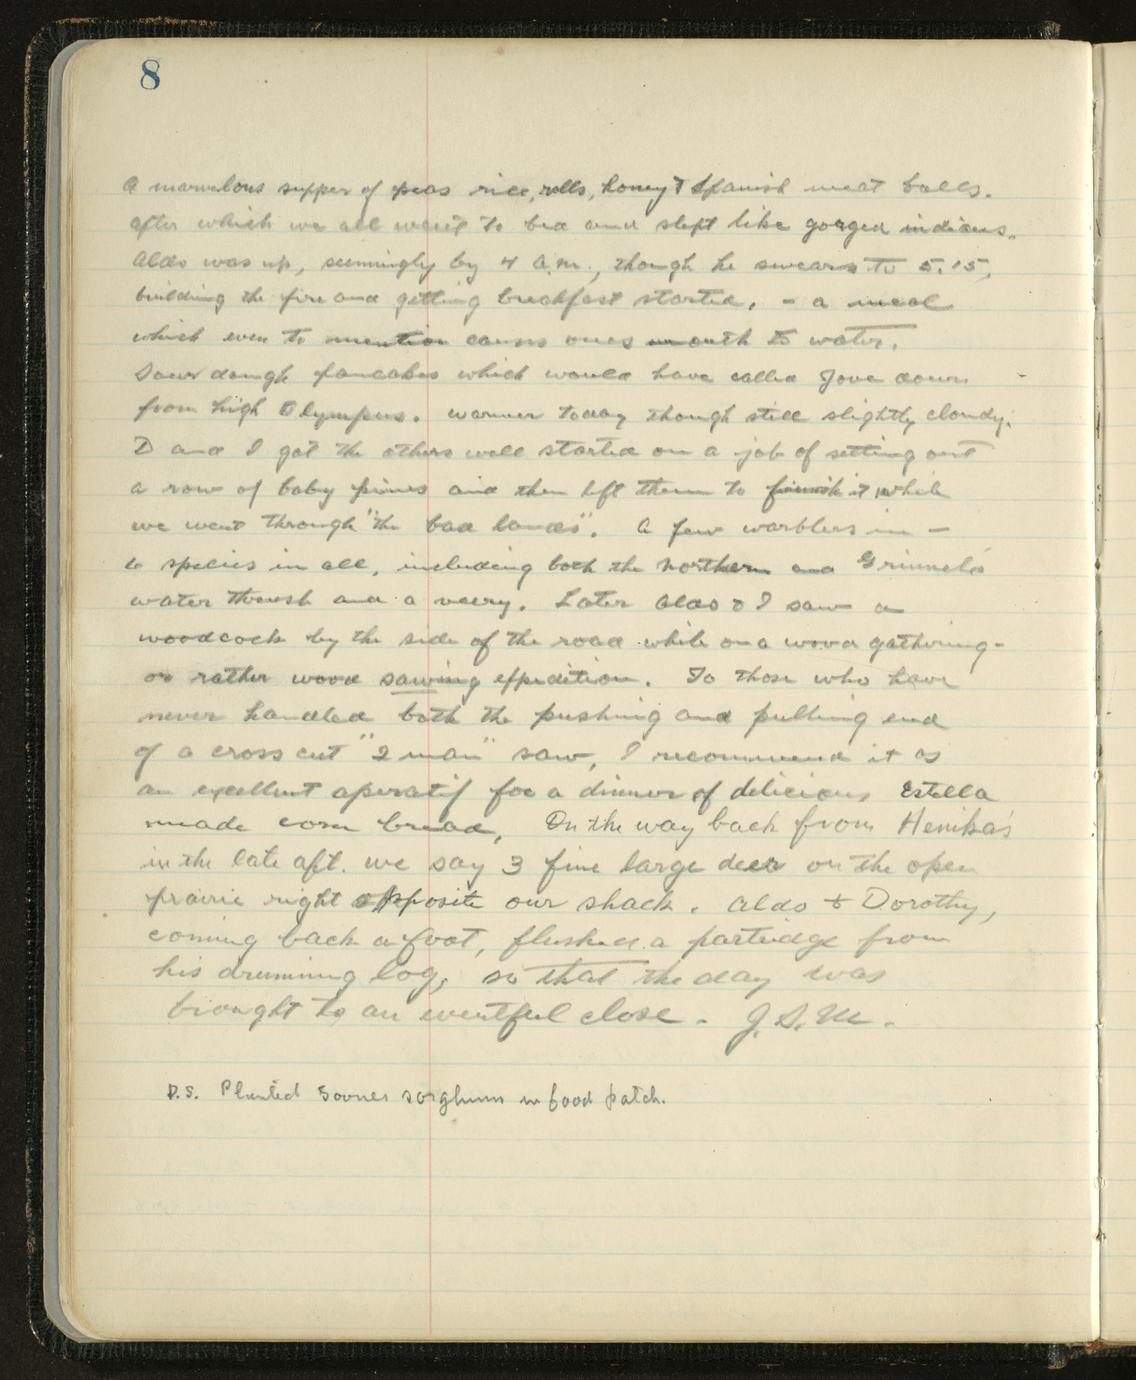 8
A marvelous supper of peas rice, rolls, honey & Spanish meat balls.
after which we all went to bed and slept like gorged indians.
Aldo was up, seemingly by 4 a.m., though he swears to 5.15,
building the fire and getting breakfast started, - a meal
which even to mention causes ones mouth to water.
Sour dough pancakes which would have called Jove down
from high Olympus. Warmer today though still slightly cloudy.
D and I got the others well started on a job of setting out
a row of baby pines and then left them to finish it while
we went through "the bad lands". A few warblers in -
species in all, including both the northern and Grinnels
water thrush and a veery. Later Aldo & I saw a
woodcock by the side of the road while on a wood gathering -
or rather wood sawing expedition. To those who have
never handled both the pushing and pulling end
of a cross cut "2 man" saw, I recommend it as
an excellent aperatif for a dinner of delicious Estella
made corn bread. On the way back from Hemika's
in the late aft. we say 3 fine large deer on the open
prairie right opposite our shack. Aldo & Dorothy,
coming back a foot, flushed a partridge from
his drumming log, so that the day was
brought to an eventful close. J.S.M.
P.S. Planted Sooner sorghum in food patch.